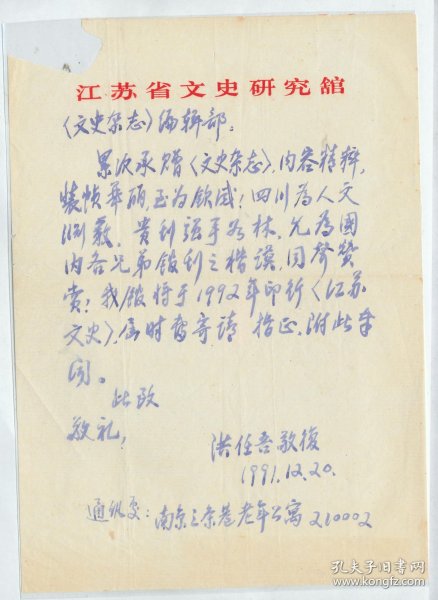 江苏省文史研究舘
《文史杂志》编辑部：
累次承赠《文史杂志》，内容精粹，
装帧华丽，至为钦感！四川为人文
渊薮，贵刊强手如林，允为國
内各兄弟馆刊之楷谟，同声赞
赏！我馆将于1992年印行《江苏
文史》，届时当寄请指正。附此奉
闻。
此致
敬礼！
洪任吾敬復
1991.12.20.
通讯处：南京三条巷老年公寓210002
孔夫子旧书网
www.kongfz.com